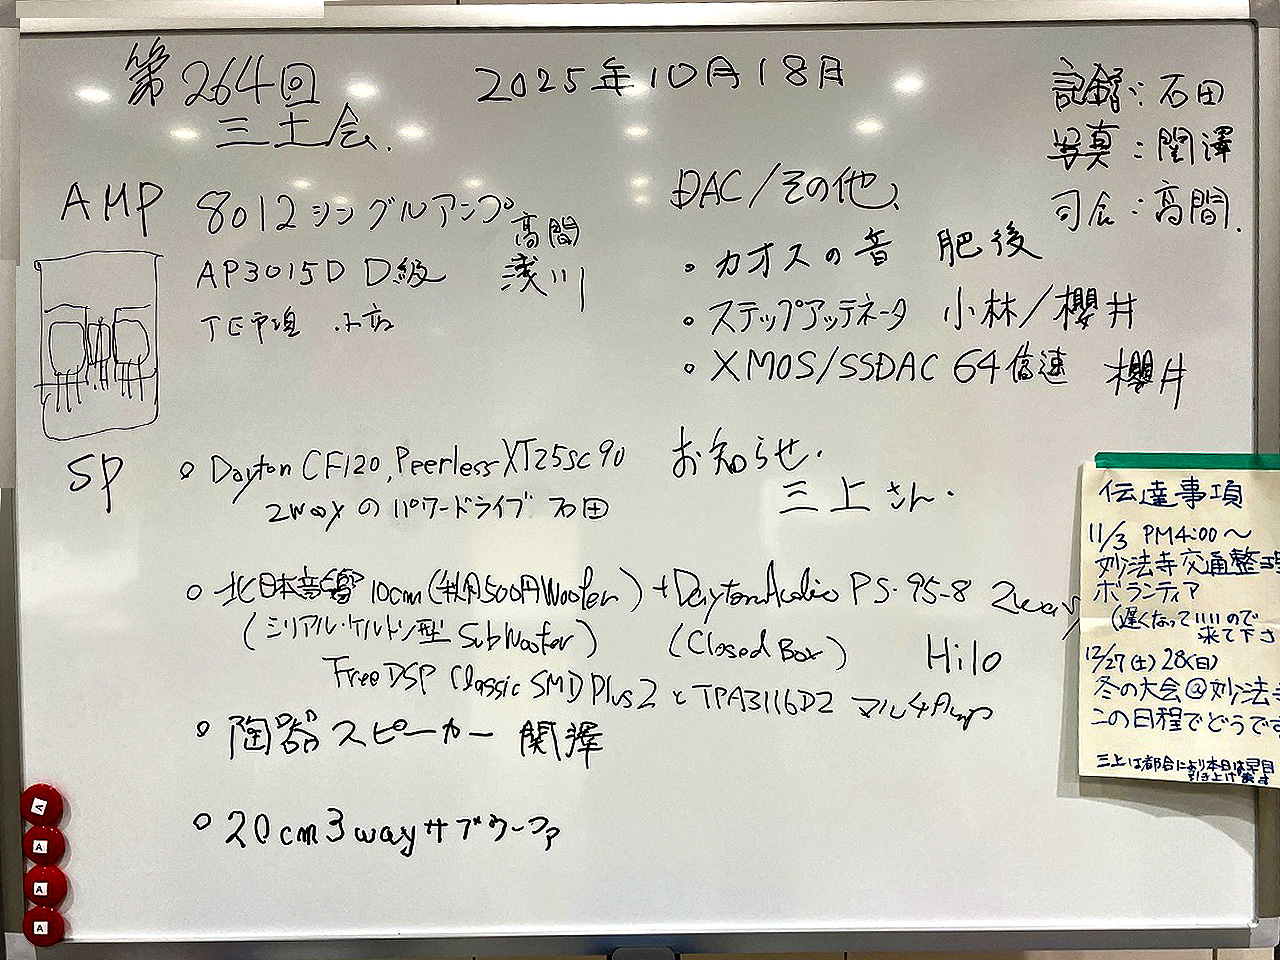 第264回
三土会.
2025年10月18日
記録:石田
写真:関澤
司会:高間.
AMP
8012シングルアンプ
高間
AP3015D D級 浅川
SP
○ Dayton CF120, Peerless XT25SC90
2wayのパワードライブ 石田
○ 北日本音響10cm(共用500円Woofer)+DaytonAudio PS-95-8 2way
(シリアル・ケルトン型 SubWoofer) (Closed Box) Hilo
FreeDSP Classic SMD Plus2とTPA3116D2 マルチAmp
○ 陶器スピーカー 関澤
○ 20cm3wayサブウーファ
DAC/その他、
・カオスの音 肥後
・ステップアッテネータ 小林/櫻井
・XMOS/SSDAC 64倍速 櫻井
お知らせ.
三上さん.
伝達事項
11/3 PM4:00〜
妙法寺交通整理
ボランティア
(遅くなっていいので
来て下さ
12/27(土)28(日)
冬の大会@妙法寺
この日程でどうです
三上は都合により本日は早目
引き上げます
A
A
A
A